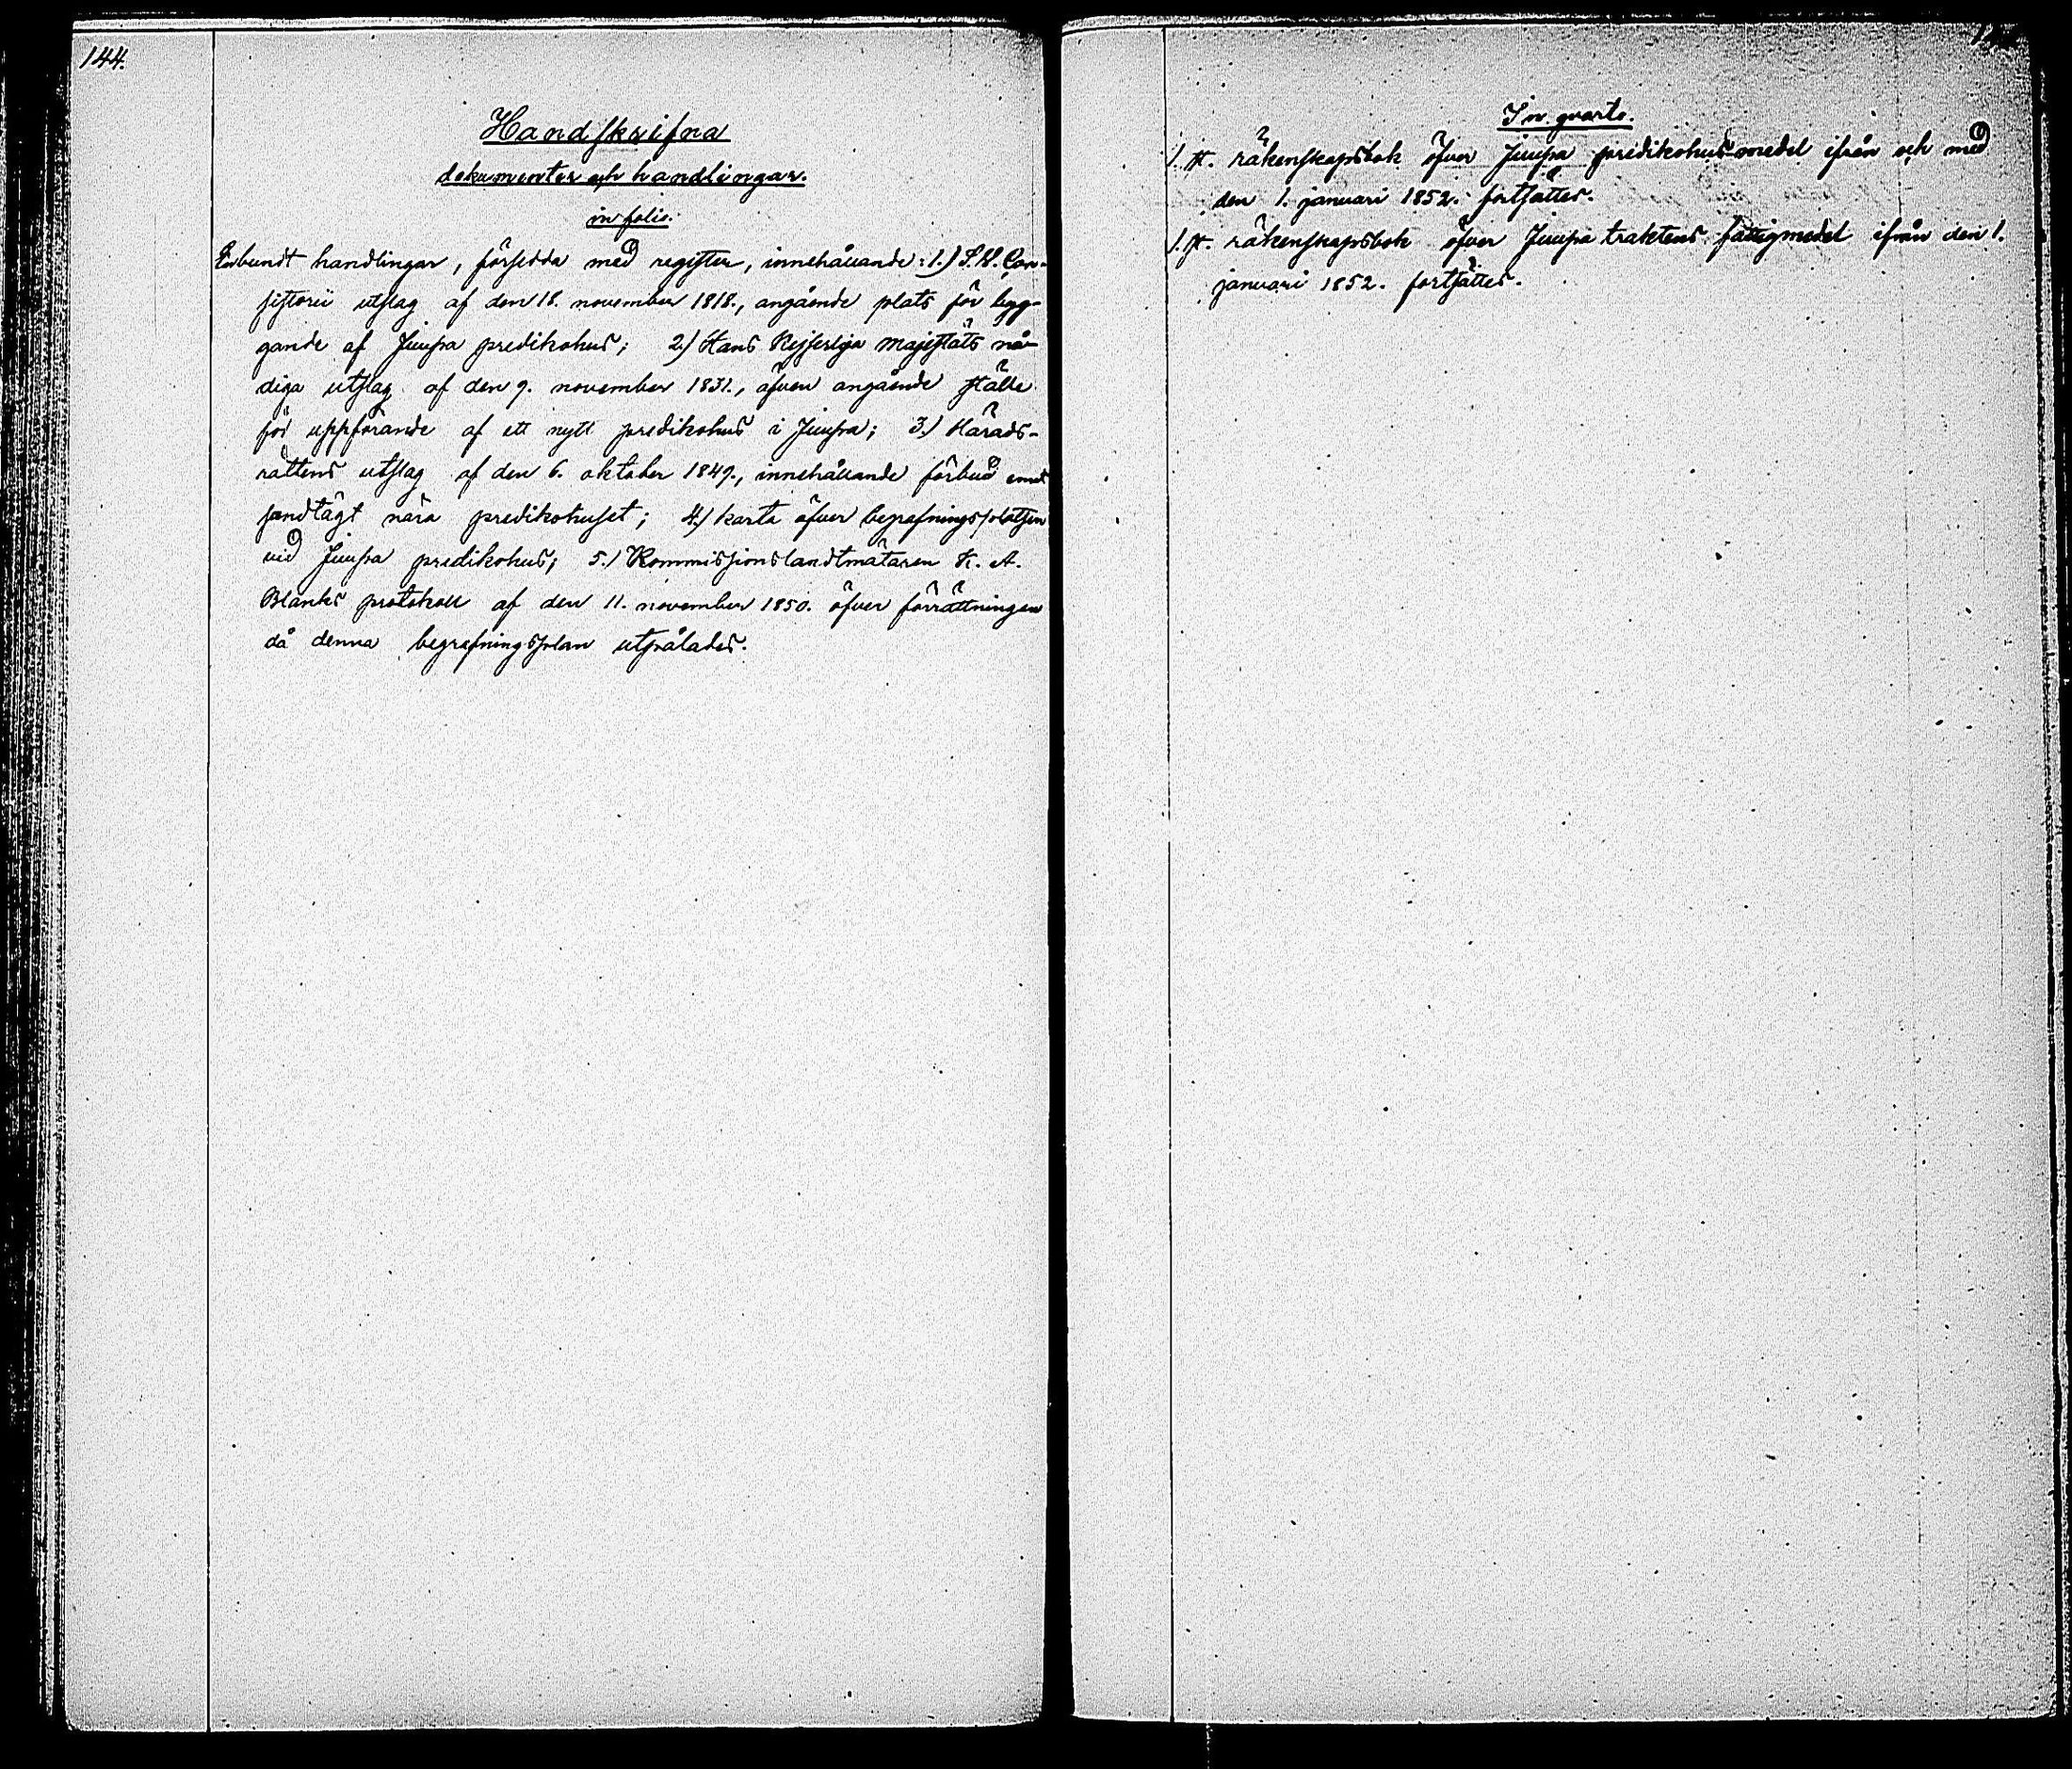 144.
Handskrifna
dokumenter och handlingar.
in folio.
En bundt handlingar, försedda med register, innehållande: 1.) S.W. Con-
sistorii utslag af den 18. november 1818., angående plats för byg-
gande af Juupa predikohus; 2.) Hans Kejserliga Majestäts nå-
diga utslag af den 9. november 1831., äfven angående ställe
för uppförande af ett nytt predikohus i Juupa; 3.) Härads-
rättens utslag af den 6. oktober 1849., innehållande förbud emot
sandtägt nära predikohuset; 4.) karta öfver begrafningsplatsen
vid Juupa predikohus; 5.) Kommissionslandtmätaren K. A.
Blanks protokoll af den 11. november 1850. öfver förrättningen
då denna begrafningsplan utpålades.
In quarto.
1. st. räkenskapsbok öfver Juupa predikohus-medel ifrån och med
den 1. januari 1852. fortsättes.
1. st. räkenskapsbok öfver Juupa traktens fattigmedel ifrån den 1.
januari 1852. fortsättes.